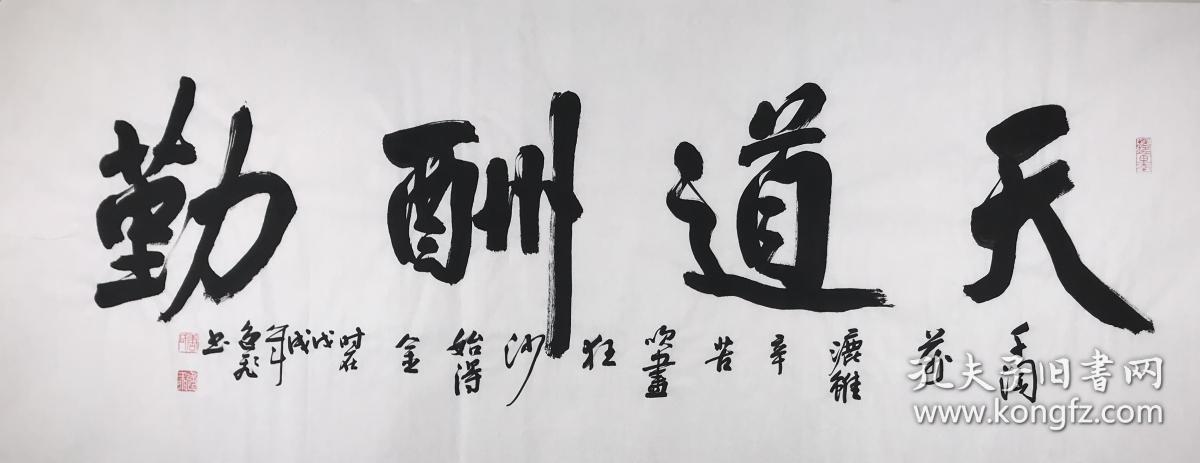 天道酬勤
千淘萬漉雖辛苦吹盡狂沙始得金
时在戊戌年
书
孔夫子旧书网
www.kongfz.com